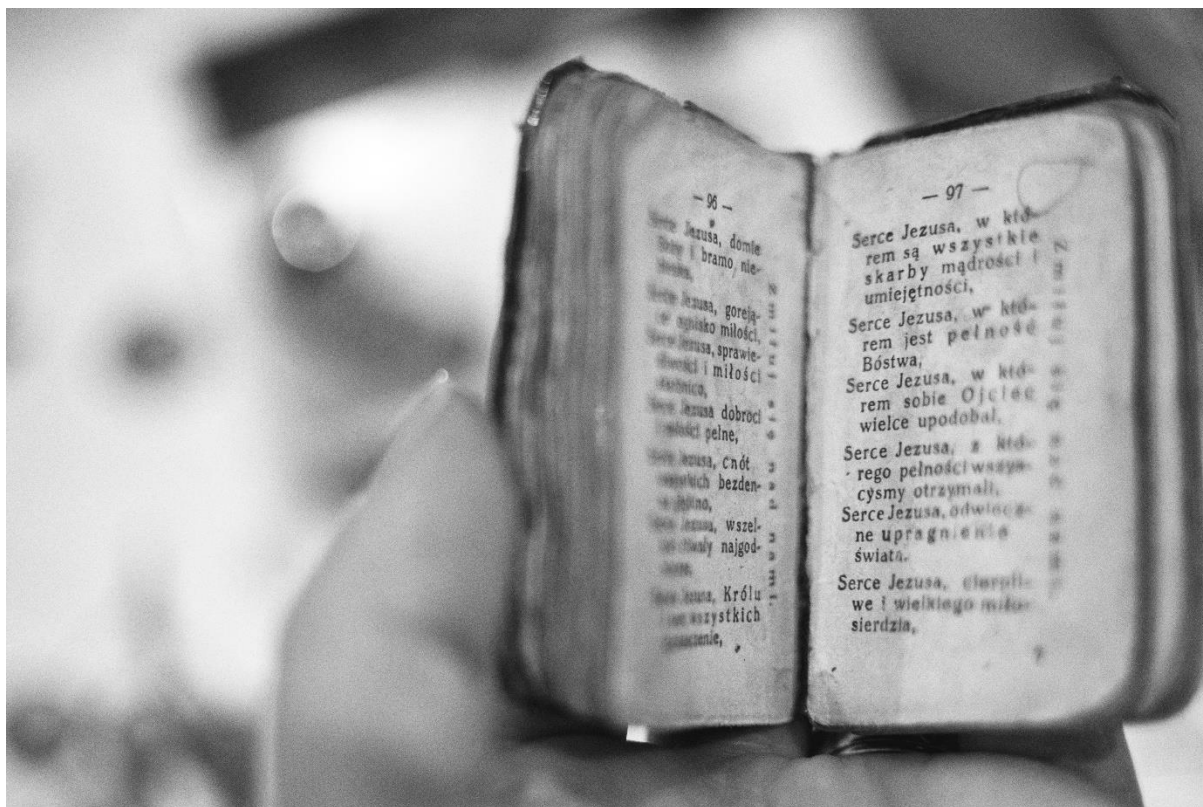 — 96 —
Jezusa, domie
i bramo nie-
Jezusa, goreją-
ognisko miłości,
Jezusa, sprawie-
i miłości
Jezusa dobroci
pełne,
Jezusa, cnót
bezden-
Jezusa, wszel-
chwały najgod-
Jezusa, Królu
wszystkich
— 97 —
Serce Jezusa, w któ-
rem są wszystkie
skarby mądrości i
umiejętności,
Serce Jezusa, w któ-
rem jest pełność
Bóstwa,
Serce Jezusa, w któ-
rem sobie Ojciec
wielce upodobał,
Serce Jezusa, z któ-
rego pełności wszys-
cyśmy otrzymali,
Serce Jezusa, odwiecz-
ne upragnienie
świata.
Serce Jezusa, cierpli-
we i wielkiego miło-
sierdzia,